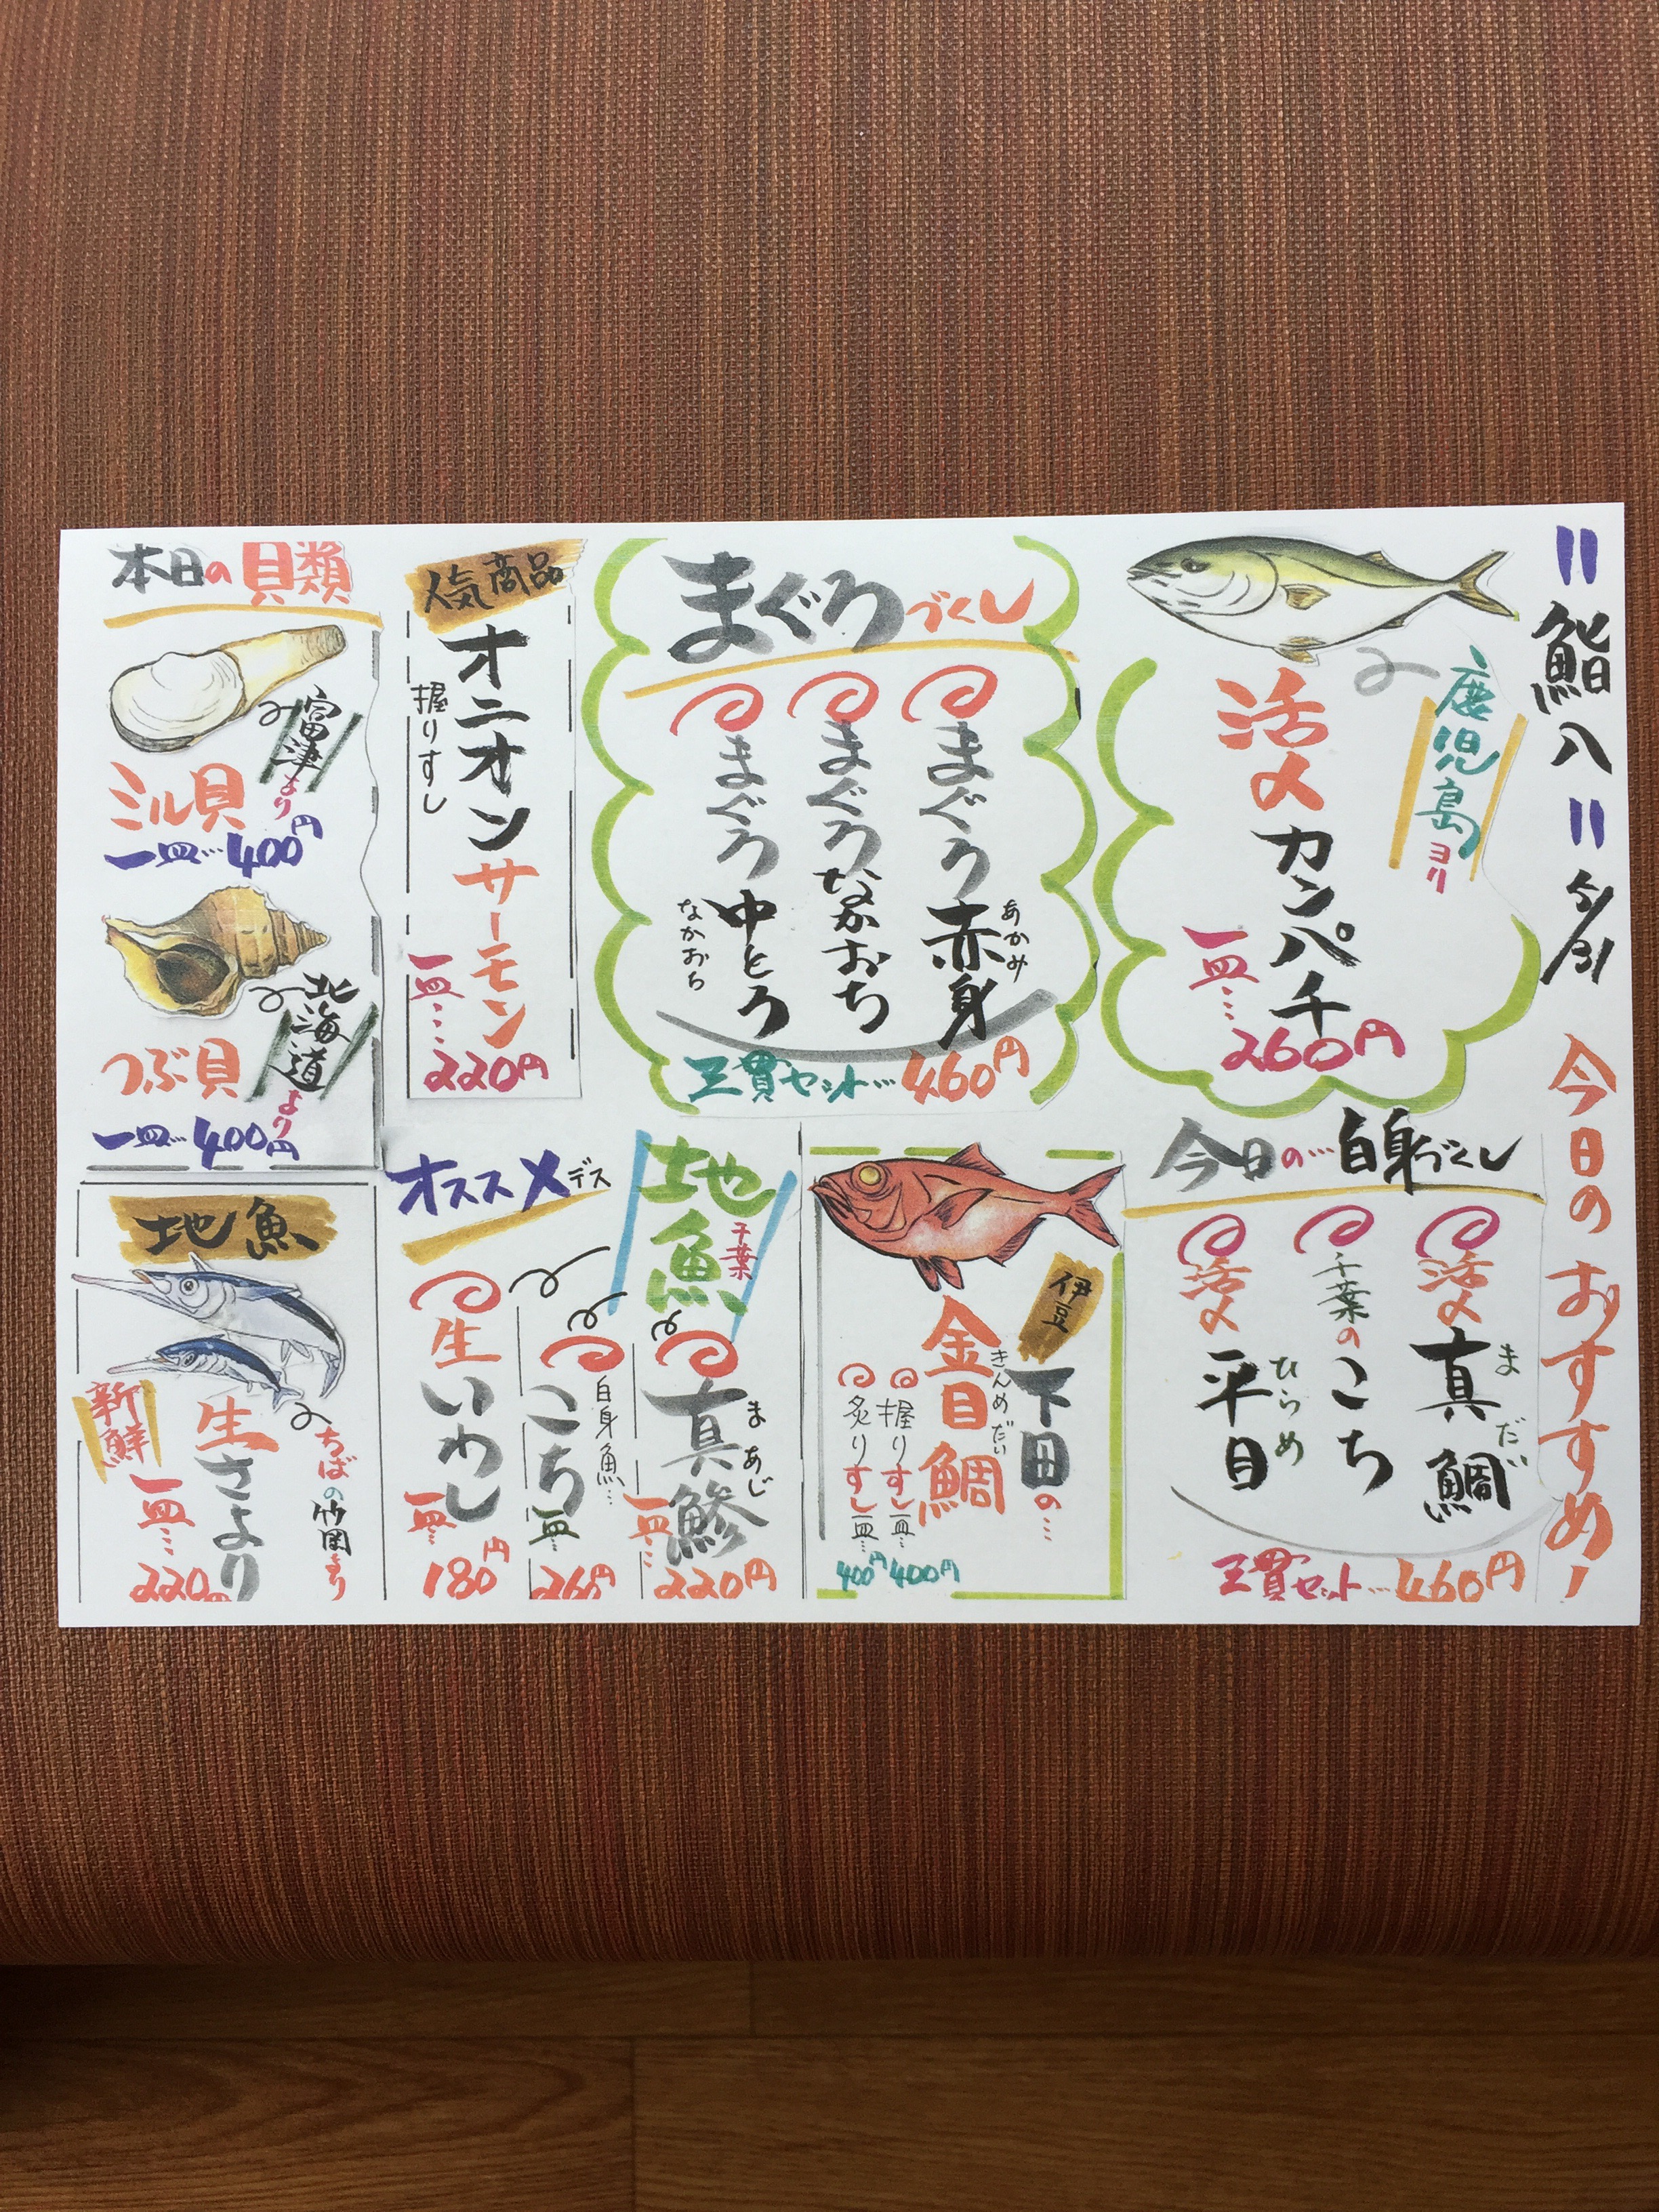 鮨八
5/31
今日のおすすめ!
鹿児島ヨリ
活〆カンパチ
一皿…260円
まぐろづくし
まぐろ赤身
あかみ
まぐろなかおち
まぐろ中とろ
なかおち
三貫セット…460円
人気商品
オニオンサーモン
握りすし
一皿…220円
本日の貝類
富津より
ミル貝
一皿…400円
北海道より
つぶ貝
一皿…400円
今日の…白身づくし
活〆真鯛
まだい
千葉のこち
活〆平目
ひらめ
三貫セット…460円
伊豆
下田の…
金目鯛
きんめだい
握りすし一皿…400円
炙りすし一皿…400円
オススメデス
地魚
千葉
真鯵
まあじ
一皿…220円
白身魚…
こち
一皿…260円
生いわし
一皿…180円
地魚
ちばの竹岡より
新鮮
生さより
一皿…220円